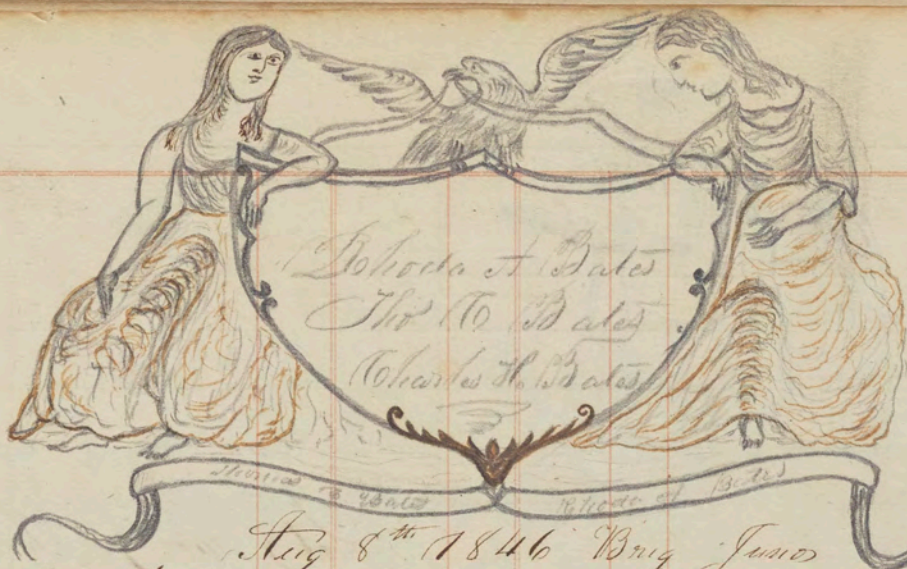 Rhoda A Bates
Thos C Bates
Charles H. Bates
Thomas C Bates Rhoda A Bates
Aug 8th 1846 Brig Junos